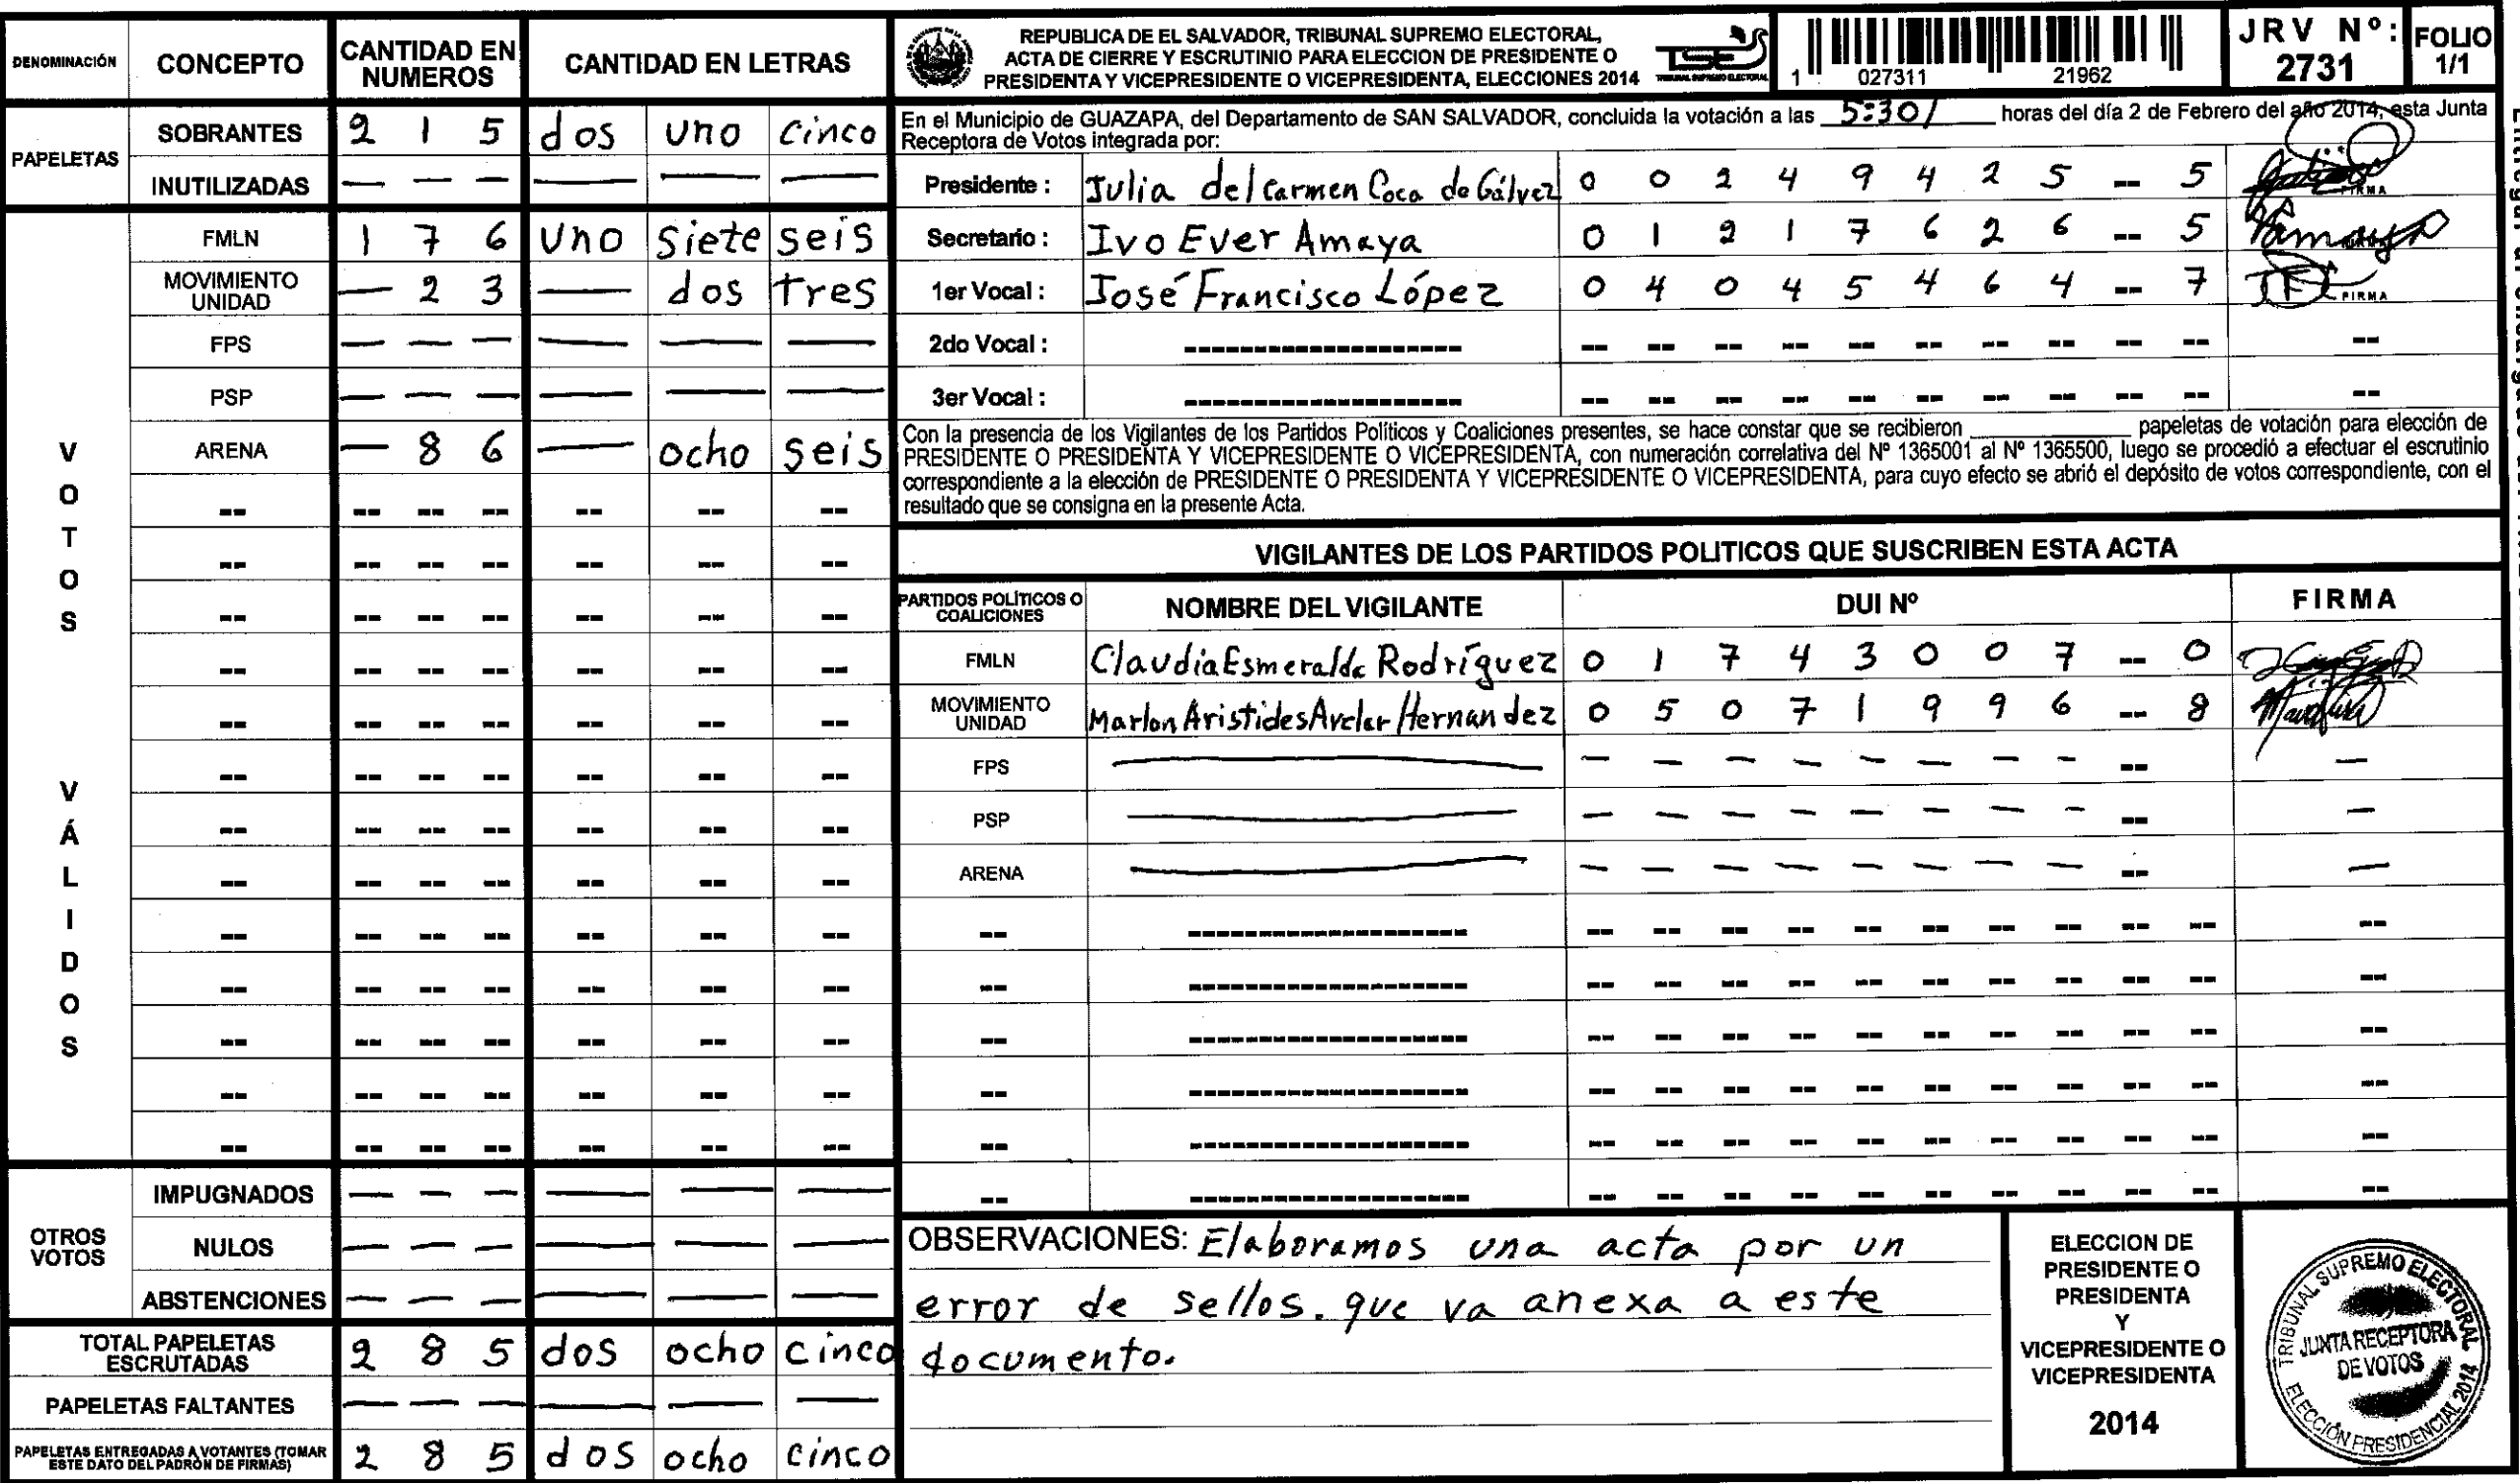 DENOMINACIÓN CONCEPTO CANTIDAD EN NUMEROS CANTIDAD EN LETRAS
PAPELETAS
SOBRANTES 2 1 5 dos uno cinco
INUTILIZADAS — — — — — —
VOTOS VÁLIDOS
FMLN 1 7 6 uno siete seis
MOVIMIENTO UNIDAD — 2 3 — dos tres
FPS — — — — — —
PSP — — — — — —
ARENA — 8 6 — ocho seis
OTROS VOTOS
IMPUGNADOS — — — — — —
NULOS — — — — — —
ABSTENCIONES — — — — — —
TOTAL PAPELETAS ESCRUTADAS 2 8 5 dos ocho cinco
PAPELETAS FALTANTES — — — — — —
PAPELETAS ENTREGADAS A VOTANTES (TOMAR ESTE DATO DEL PADRÓN DE FIRMAS) 2 8 5 dos ocho cinco
REPUBLICA DE EL SALVADOR, TRIBUNAL SUPREMO ELECTORAL,
ACTA DE CIERRE Y ESCRUTINIO PARA ELECCION DE PRESIDENTE O
PRESIDENTA Y VICEPRESIDENTE O VICEPRESIDENTA, ELECCIONES 2014
TSE
TRIBUNAL SUPREMO ELECTORAL
1 027311 21962
JRV Nº: 2731
FOLIO 1/1
En el Municipio de GUAZAPA, del Departamento de SAN SALVADOR, concluida la votación a las 5:30/ horas del día 2 de Febrero del año 2014, esta Junta
Receptora de Votos integrada por:
Presidente : Julia del Carmen Coca de Gálvez 0 0 2 4 9 4 2 5 -- 5 FIRMA
Secretario : Ivo Ever Amaya 0 1 2 1 7 6 2 6 -- 5
1er Vocal : José Francisco López 0 4 0 4 5 4 6 4 -- 7 FIRMA
2do Vocal :
3er Vocal :
Con la presencia de los Vigilantes de los Partidos Políticos y Coaliciones presentes, se hace constar que se recibieron ____ papeletas de votación para elección de
PRESIDENTE O PRESIDENTA Y VICEPRESIDENTE O VICEPRESIDENTA, con numeración correlativa del Nº 1365001 al Nº 1365500, luego se procedió a efectuar el escrutinio
correspondiente a la elección de PRESIDENTE O PRESIDENTA Y VICEPRESIDENTE O VICEPRESIDENTA, para cuyo efecto se abrió el depósito de votos correspondiente, con el
resultado que se consigna en la presente Acta.
VIGILANTES DE LOS PARTIDOS POLITICOS QUE SUSCRIBEN ESTA ACTA
PARTIDOS POLÍTICOS O COALICIONES NOMBRE DEL VIGILANTE DUI Nº FIRMA
FMLN Claudia Esmeralda Rodríguez 0 1 7 4 3 0 0 7 -- 0
MOVIMIENTO UNIDAD Marlon Aristides Avelar Hernandez 0 5 0 7 1 9 9 6 -- 8
FPS — — — — — — — — — -- —
PSP — — — — — — — — — -- —
ARENA — — — — — — — — — -- —
OBSERVACIONES: Elaboramos una acta por un
error de sellos. que va anexa a este
documento.
ELECCION DE
PRESIDENTE O
PRESIDENTA
Y
VICEPRESIDENTE O
VICEPRESIDENTA
2014
TRIBUNAL SUPREMO ELECTORAL
JUNTA RECEPTORA
DE VOTOS
ELECCIÓN PRESIDENCIAL 2014